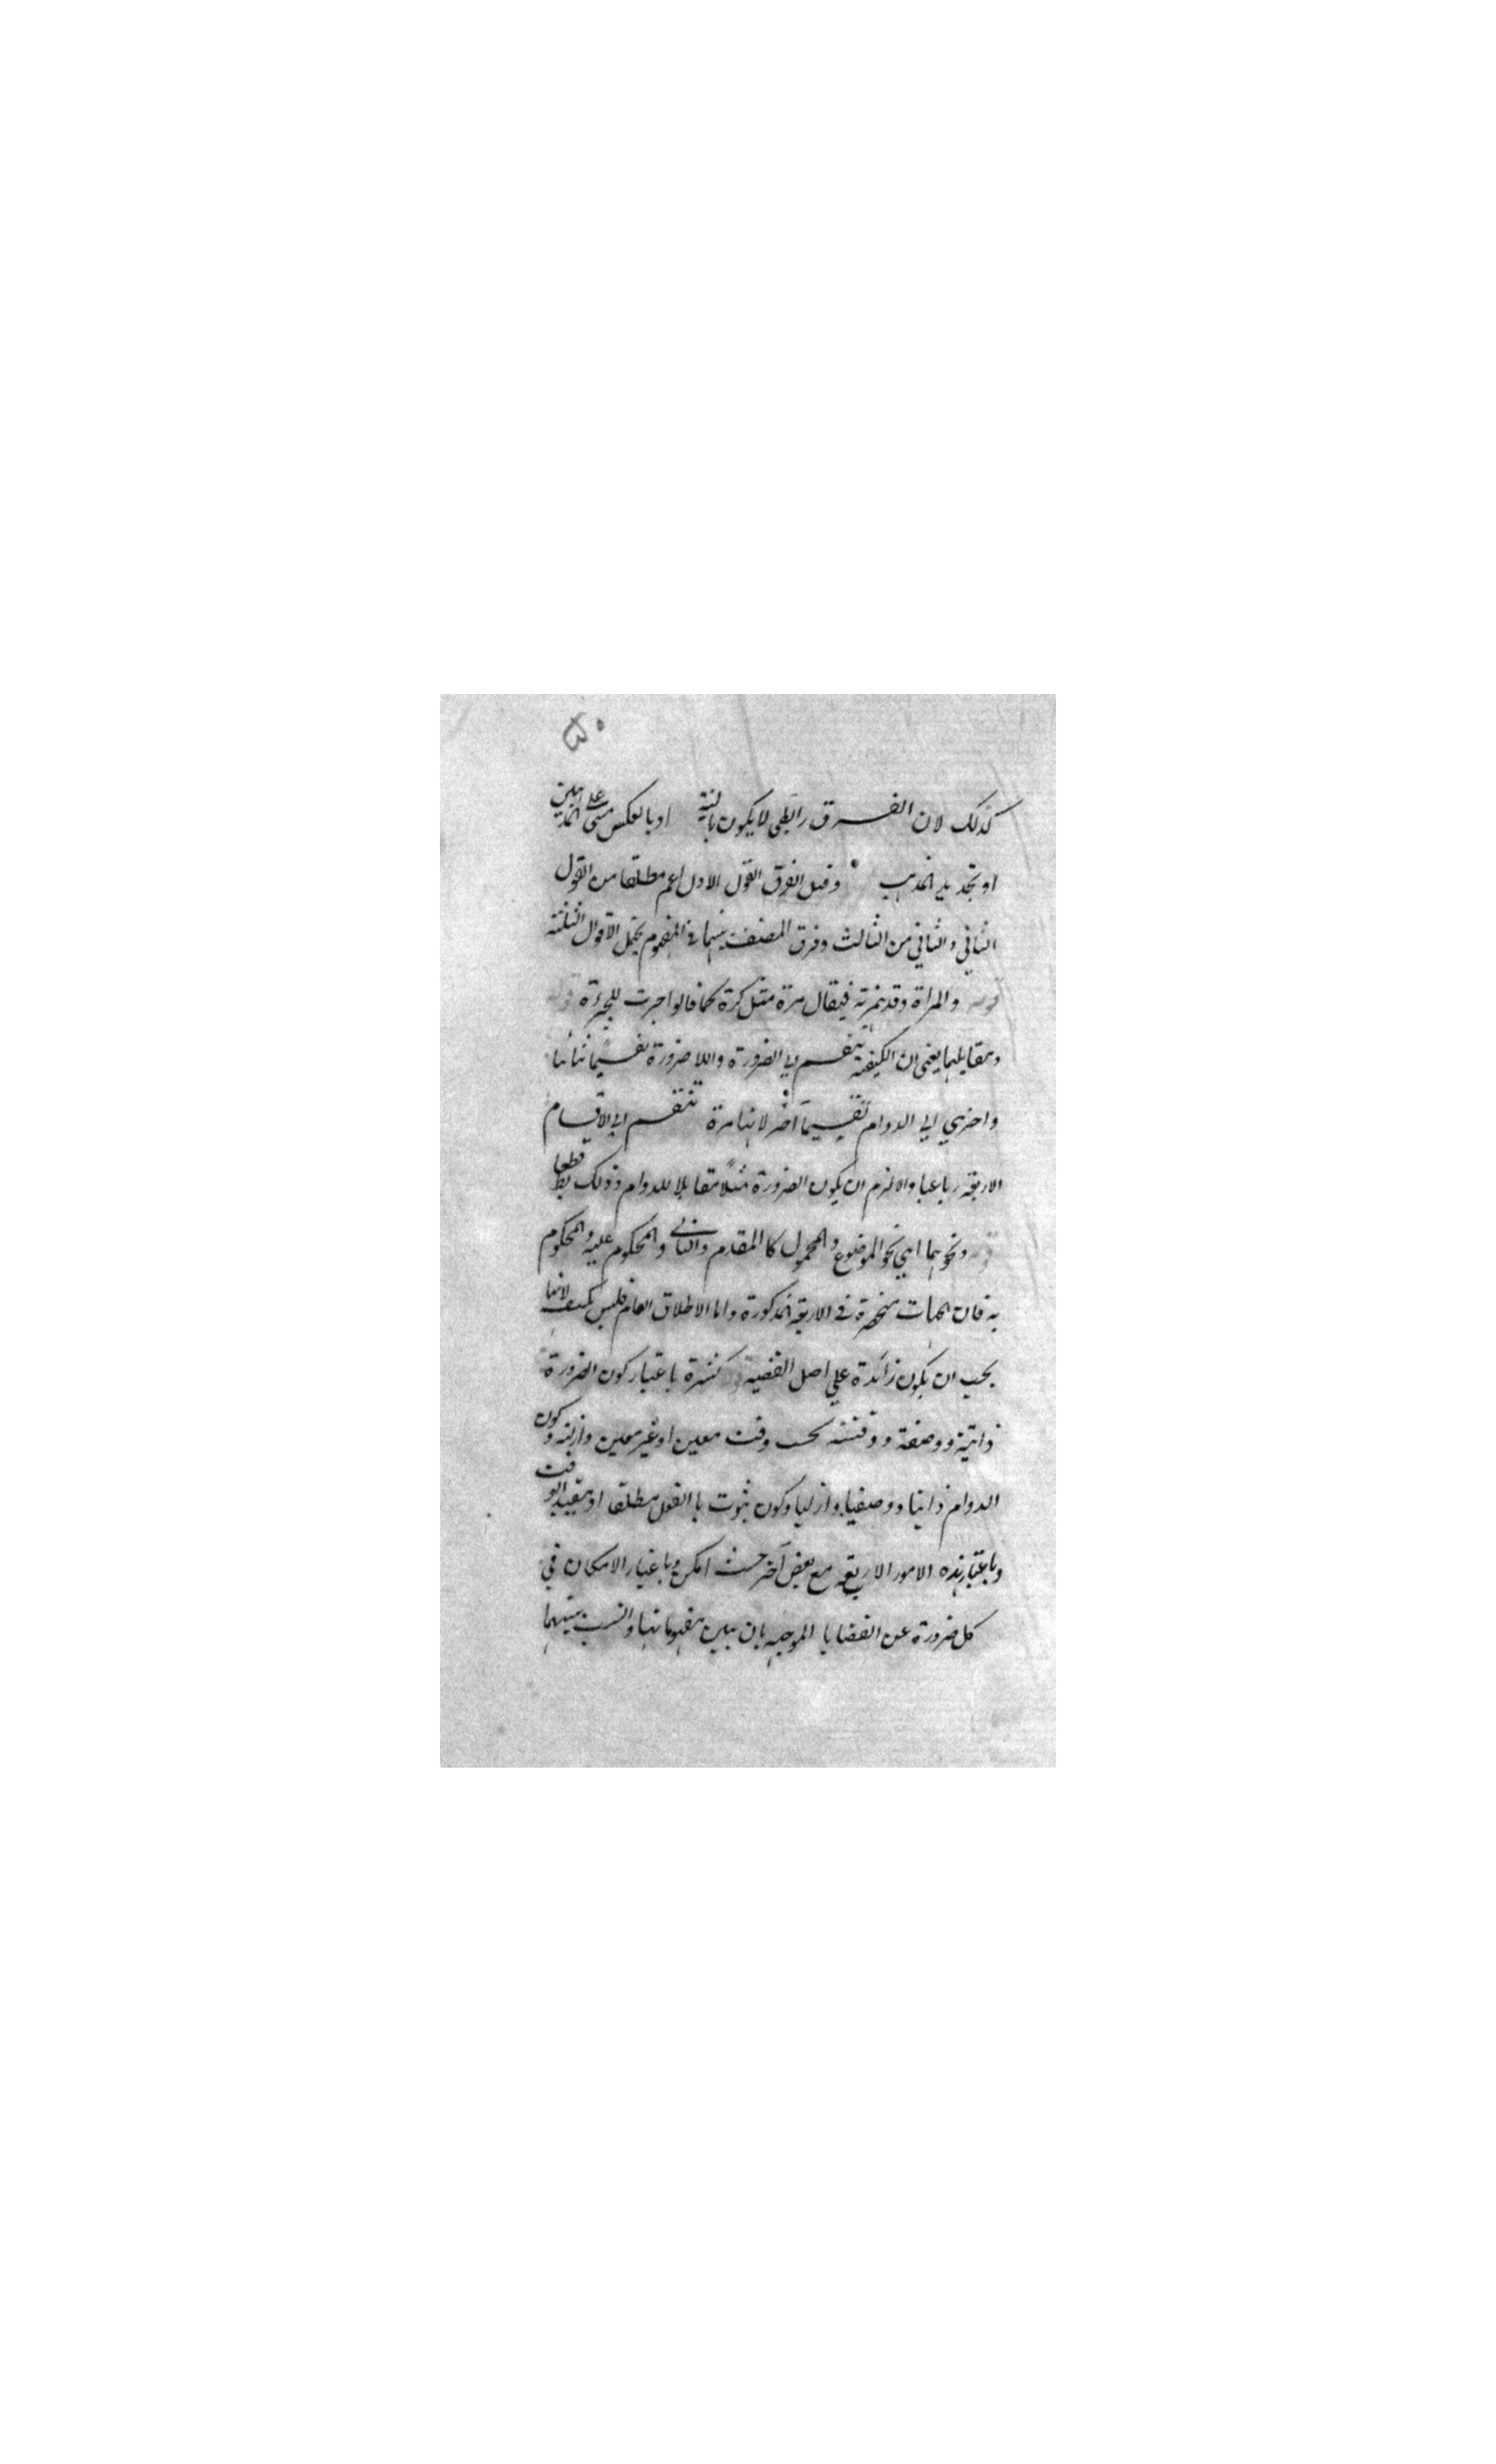 ۵۰
كذلك لان الفرق رابطي لا يكون بالنية او بالعكس مشى على المذهبين
او تجديد المذهب وقيل الفرق القول الاول اعم مطلقا من القول
الثاني والثاني من الثالث وفرق المصنف بينهما في المفهوم يحتمل الاقوال الثلثة
قوله والمراة وقد فيقال مرة مثل كرة كما قالوا قوله
ومقابلهما يعني ان الكيفية تنقسم الي الضرورة واللا ضرورة تقسيما ثنائيا
واخري الي الدوام تقسيما آخر لا انها مرة تنقسم الي الاقسام
الاربعة رباعيا والا لزم ان يكون الضرورة مثلا مقابلا للدوام وذلك بط قطعا
قوله ونحوهما اي نحو الموضوع والمحمول كالمقدم والتالي والمحكوم عليه والمحكوم
به فان الجهات منحصرة في الاربعة المذكورة واما الاطلاق العام فليس بكيف لانها
يجب ان يكون زائدة علي اصل القضية كثيرة باعتبار كون الضرورة
ذاتية ووصفية ووقتية بحسب وقت معين او غير معين وازلية وكون
الدوام ذاتيا ووصفيا وازليا وكون ثبوت بالفعل مطلقا او مقيد بالوقت
وباعتبار هذه الامور الاربعة مع بعض آخر حيث امكن وباعتبار الامكان في
كل ضرورة عن القضايا الموجهة بان يبين مفهوماتها والنسب بينهما